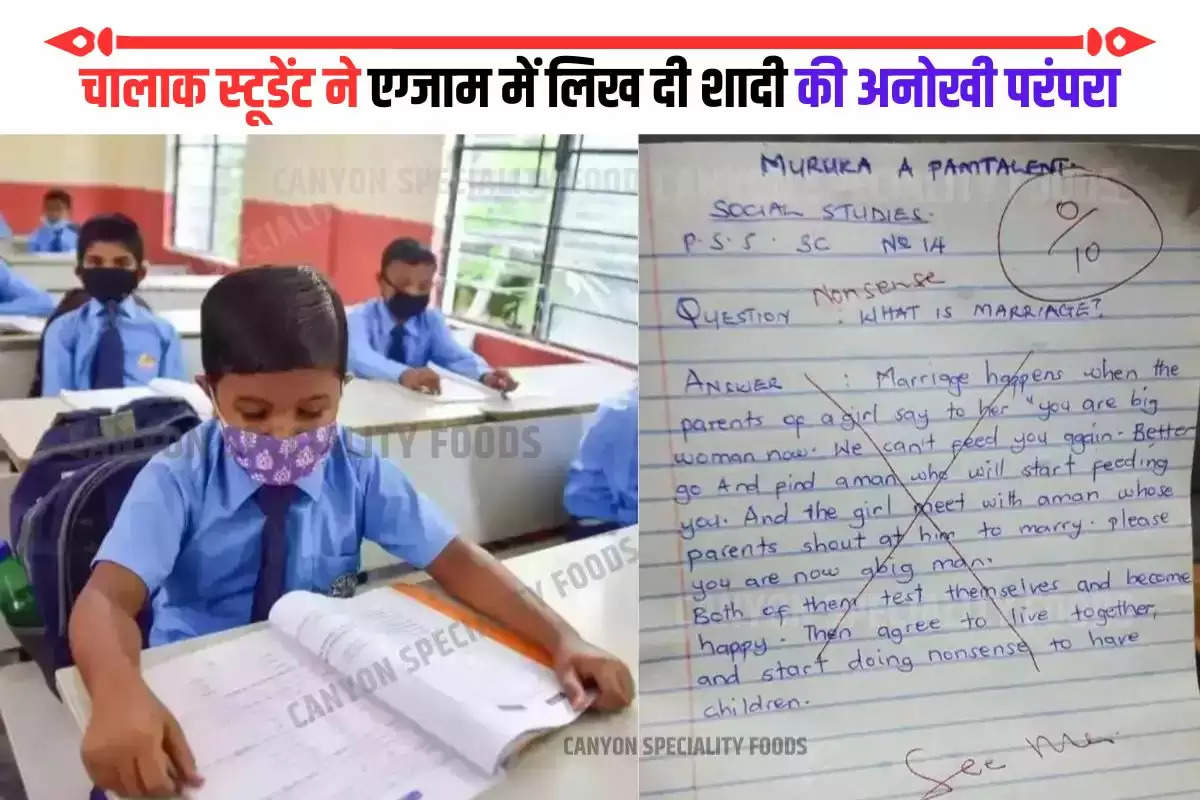 चालाक स्टूडेंट ने एग्जाम में लिख दी शादी की अनोखी परंपरा
CANYON SPECIALITY FOODS
CANYON SPECIALITY FOODS
CANYON SPECIALITY FOODS
CANYON SPECIALITY FOODS
MURUKA A PAMTALENT.
SOCIAL STUDIES.
P.S.5. SC No 14
0/10
Nonsense
QUESTION : WHAT IS MARRIAGE?
ANSWER : Marriage happens when the
parents of a girl say to her "you are big
woman now. We can't feed you again. Better
go And find aman who will start feeding
you. And the girl meet with aman whose
parents shout at him to marry. please
you are now abig man.
Both of them test themselves and become
happy. Then agree to live together,
and start doing nonsense to have
children.
See Me.
CANYON SPECIALITY FOODS